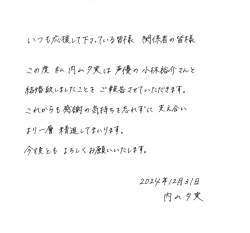 いつも応援して下さっている皆様　関係者の皆様
この度 私 内山夕実は 声優の 小林裕介さんと
結婚致しましたことを ご報告させていただきます。
これからも感謝の気持ちを忘れずに 支え合い
より一層 精進してまいります。
今後とも よろしくお願いいたします。
2024年12月31日
内山夕実